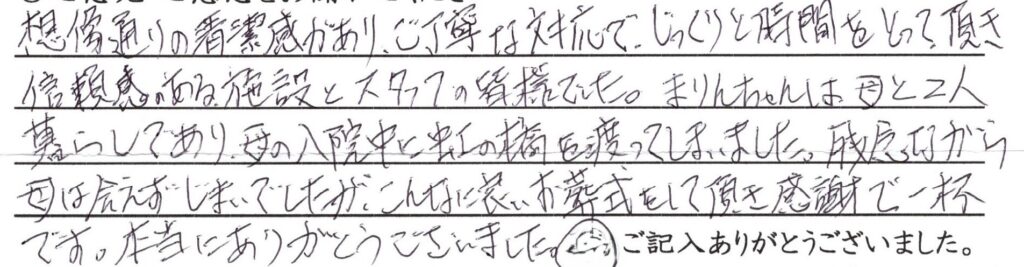 想像通りの清潔感があり、ご丁寧な対応で、じっくりと時間をとって頂き
信頼感のある施設とスタッフの皆様でした。まりんちゃんは母と二人
暮らしであり、母の入院中に虹の橋を渡ってしまいました。残念ながら
母は会えずじまいでしたが、こんなに良いお葬式をして頂き感謝で一杯
です。本当にありがとうございました。
ご記入ありがとうございました。